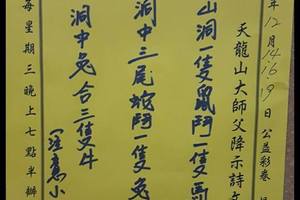 年12月14.16.19日公益彩卷
天龍山大師父降示詩文
山洞一隻鼠鬥一隻馬
洞中三尾蛇鬥一隻兔
洞中兔合三隻牛
每星期三晚上七點半辦